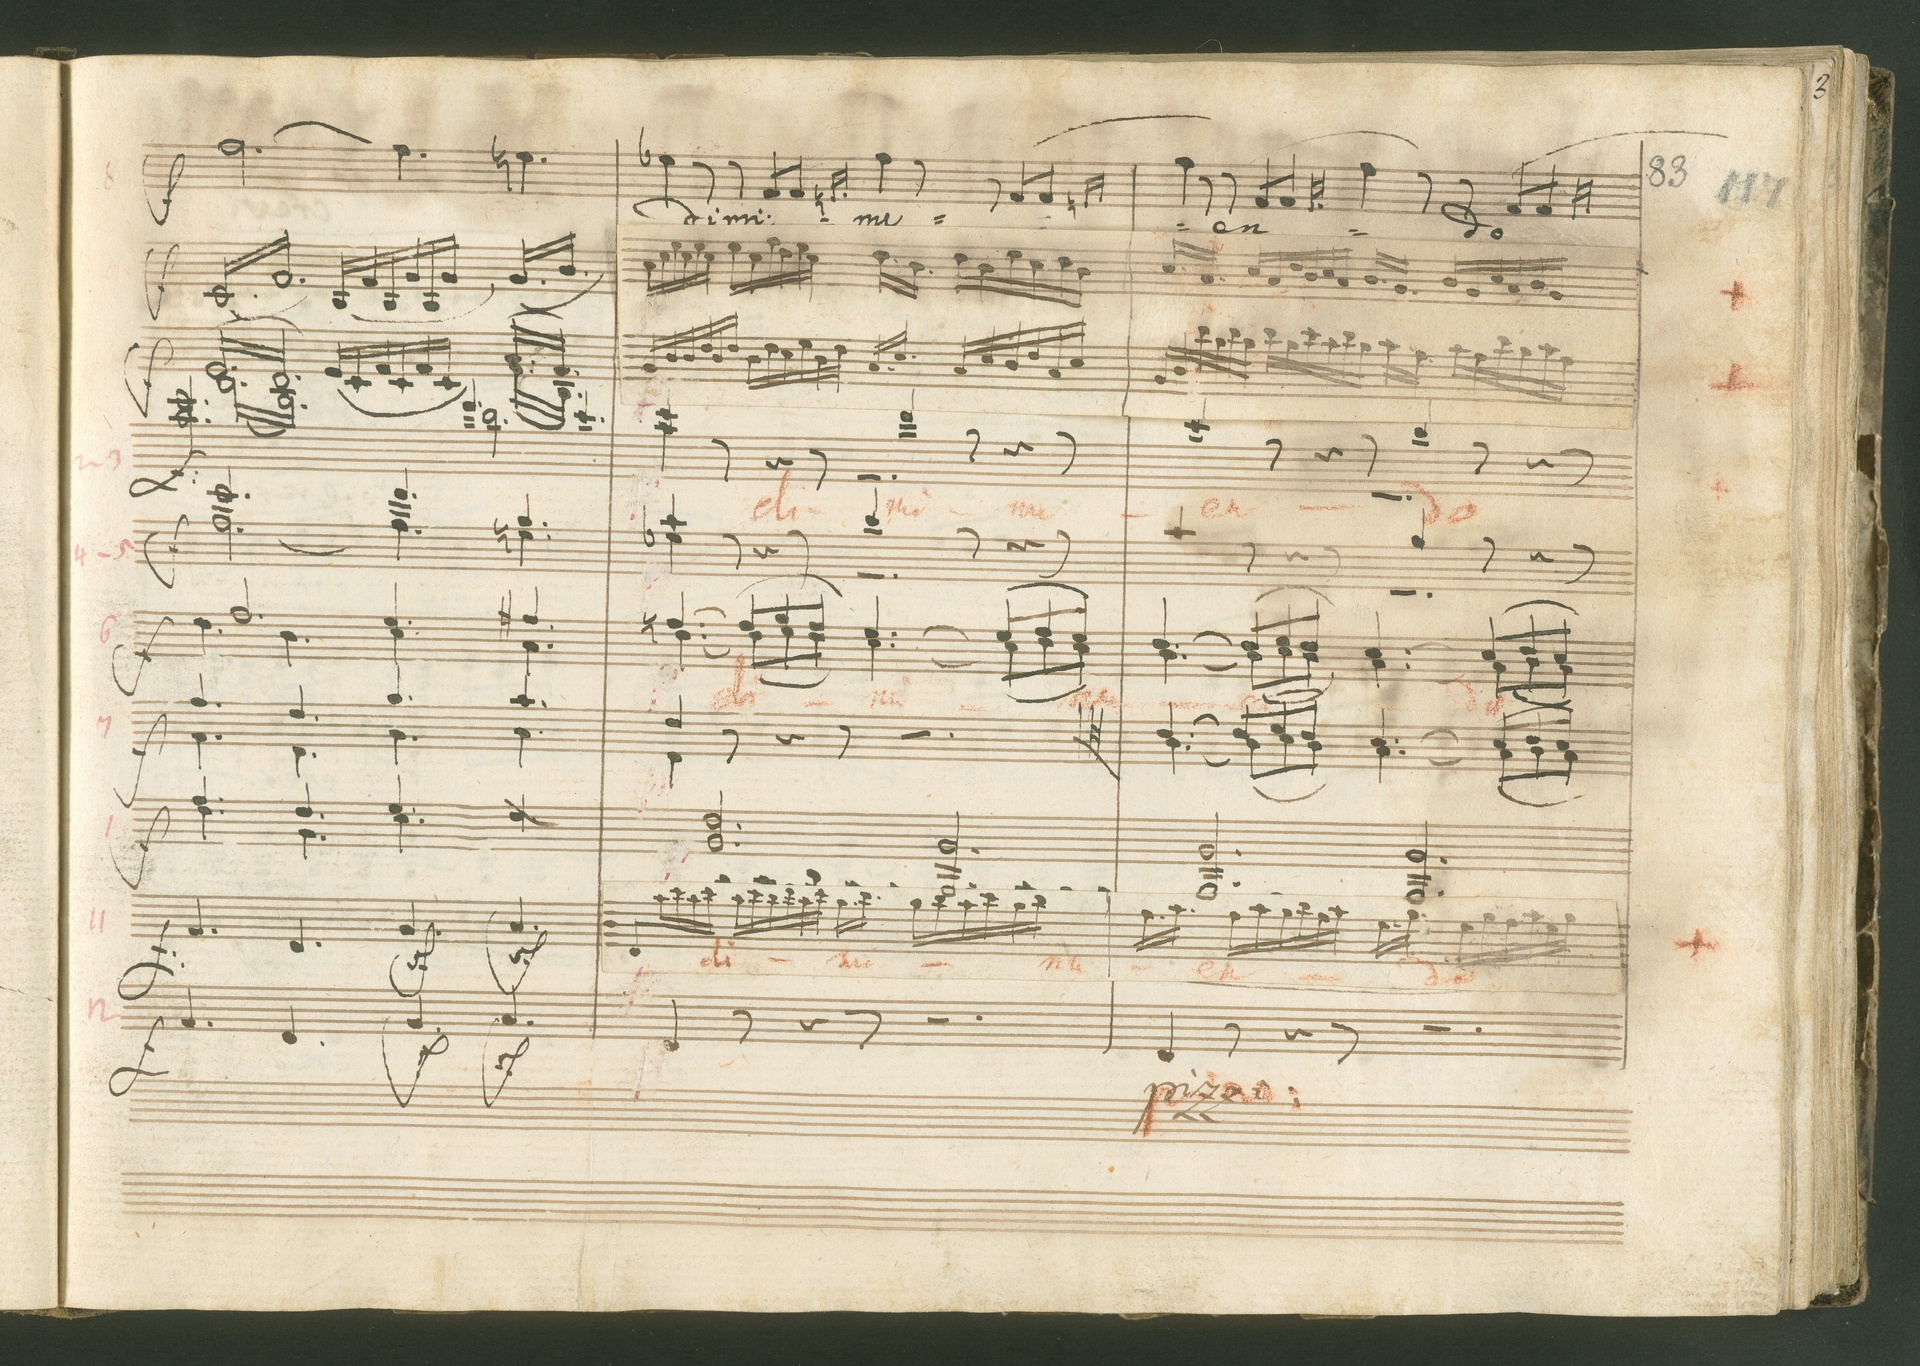 3
83 117
8
dimi: - nu = - = en = do
2-3
di - mi - nu - en - do
4-5
6
di - mi - nu - en - do
7
1
11
di - mi - nu - en - do
12
pizzo: